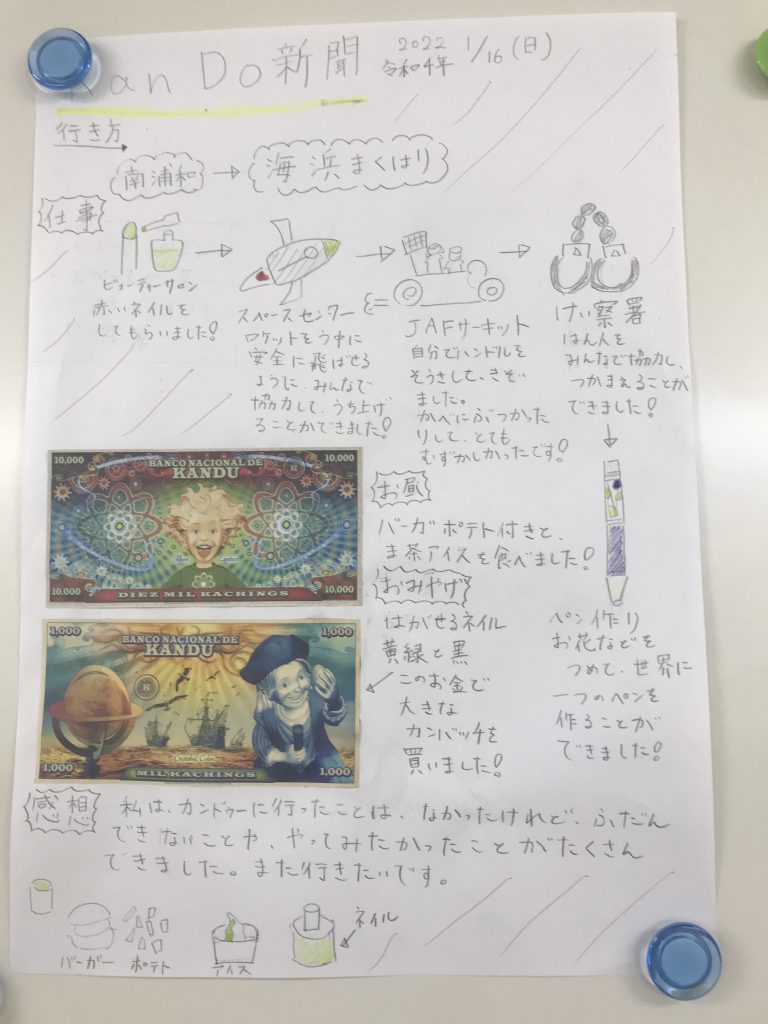 KanDo新聞
2022
令和4年
1/16(日)
行き方
南浦和
海浜まくはり
仕事
ビューティーサロン
赤いネイルを
してもらいました!
スペースセンター
ロケットをう中に
安全に飛ばせる
ように、みんなで
協力して、うち上げ
ることができました!
JAFサーキット
自分でハンドルを
そうさして、きそい
ました。
かべにぶつかった
りして、とても
むずかしかったです!
けい察署
はん人を
みんなで協力し、
つかまえることが
できました!
10,000
10,000
BANCO NACIONAL DE
KANDU
10,000
10,000
DIEZ MIL KACHINGS
お昼
バーガポテト付きと、
ま茶アイスを食べました!
おみやげ
はがせるネイル
黄緑と黒
このお金で
大きな
カンバッチを
買いました!
1,000
1,000
BANCO NACIONAL DE
KANDU
1,000
1,000
MIL KACHINGS
ペン作り
お花などを
つめて、世界に
一つのペンを
作ることが
できました!
感想
私は、カンドゥーに行ったことは、なかったけれど、ふだん
できないことや、やってみたかったことがたくさん
できました。また行きたいです。
バーガー
ポテト
アイス
ネイル